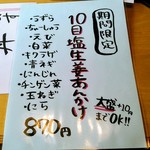 期間限定
10目塩生姜あんかけ
・うずら
・ちゃーしゅう
・えび
・白菜
・キクラゲ
・青ネギ
・にんじん
・チンゲン菜
・玉ねぎ
・にら
大盛+10円
までOK!!
870円